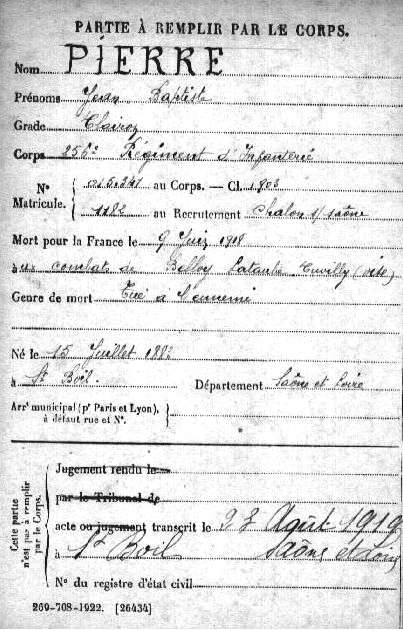 PARTIE À REMPLIR PAR LE CORPS.
Nom PIERRE
Prénoms Jean Baptiste
Grade Clairon
Corps 256e Régiment d'Infanterie
N° Matricule.
015.341 au Corps. — Cl. 1903
1182 au Recrutement Chalon s/ Saône
Mort pour la France le 9 Juin 1918
à au combat de Belloy Lataule Cuvilly (Oise)
Genre de mort Tué à l'ennemi
Né le 15 Juillet 1883
à St Boil. Département Saône et Loire
Arrt municipal (pr Paris et Lyon),
à défaut rue et N°.
Cette partie
n'est pas à remplir
par le Corps.
Jugement rendu le
par le Tribunal de
acte ou jugement transcrit le 28 Août 1919
à St Boil Saône et Loire
N° du registre d'état civil
269-708-1922. [26434]